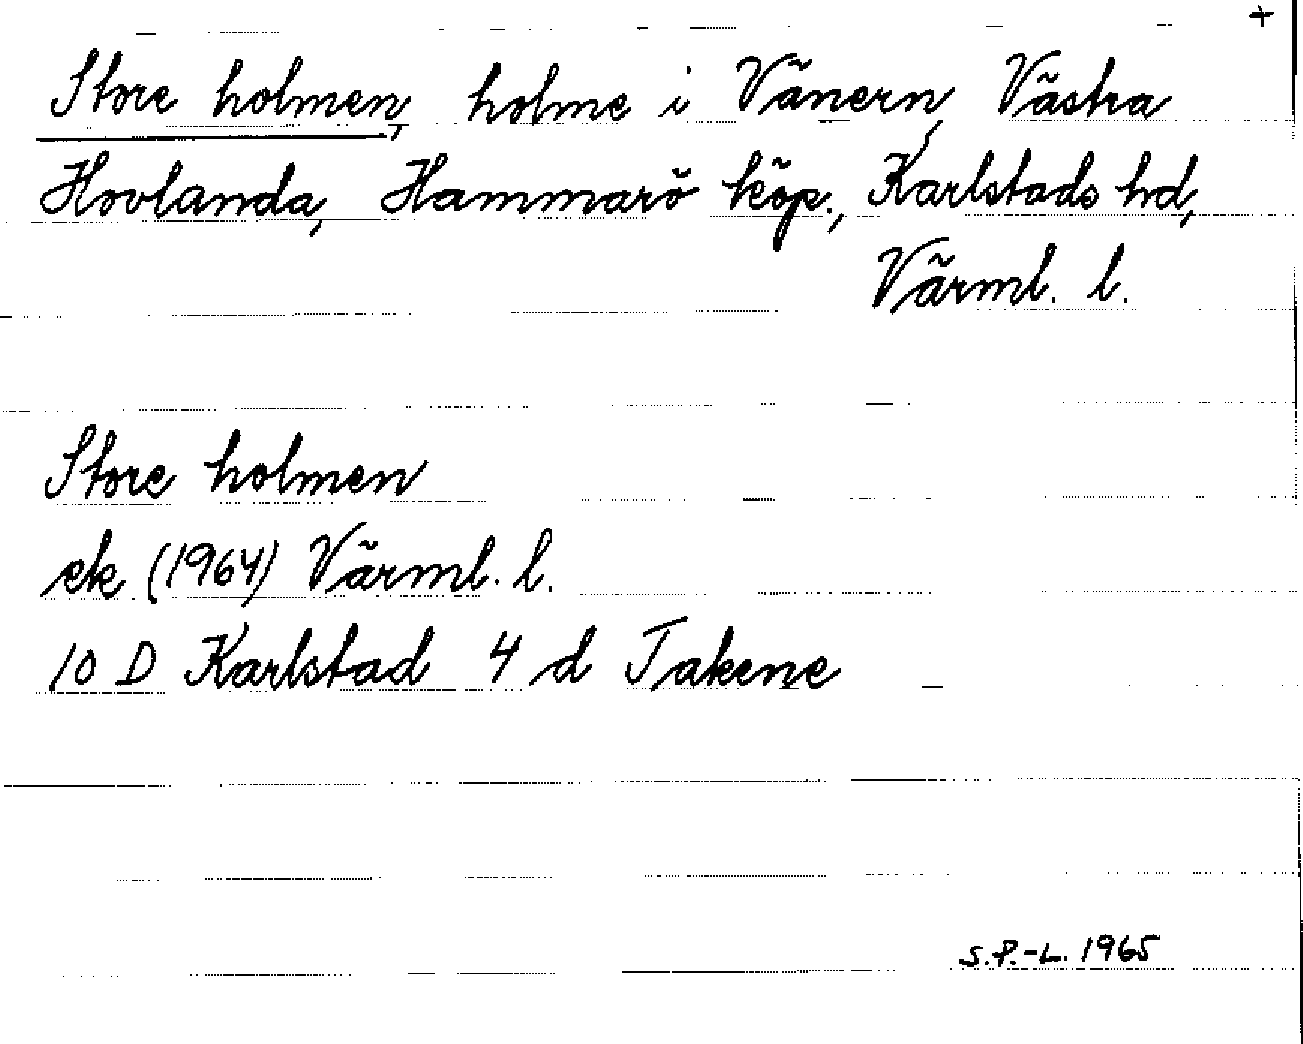 +
Store holmen, holme i Vänern, Västra
Hovlanda, Hammarö köp., Karlstads hd,
Värml. l.
Store holmen
ek (1964) Värml. l.
10 D Karlstad 4 d Takene
S.P.-L. 1965